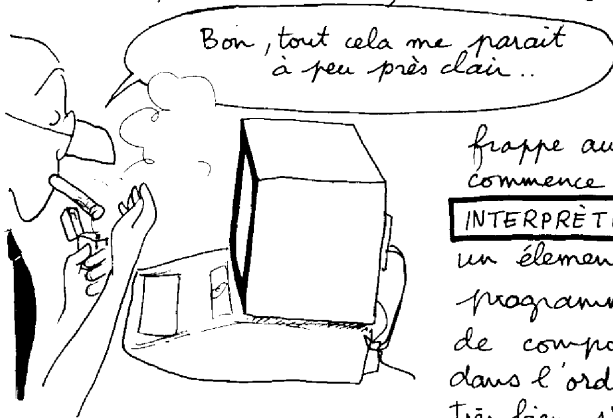 Bon, tout cela me parait
à peu près clair..
frappe au
commence
INTERPRÈT
un élémen
programm
de compo
dans l'ord